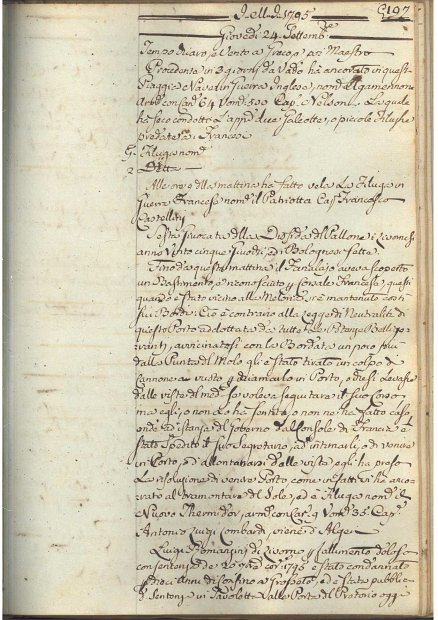 1795
C 197
Giovedì 24 Settemb.e
Tempo chiaro, e Vento a Greco, e poi Maestro
Procedente in 3 giorni da Vado ha ancorato in quest
Piaggie Nave di Guerra Inglese, nom.
con Can. 64 Uom. 500 Cap. Nelson, la quale
ha seco condotti due Galeotte, o piccole Filughe
predate a' Francesi
Filuga nom.
2 Detta
Alle ore 9 della mattina ha fatto vela la Filuga di
Guerra Francese nom. il Patriotta Cap. Francesco
Castellini
della Disfida del Pallone i Livornesi
anno Vinto cinque Giuochi, ed i Bolognesi sette
Fino da questa mattina il Fanalajo aveva scoperto
un Bastimento, e riconosciuto Corsale Francese, quasi
quando è stato vicino alla Meloria, si è mantenuto con i
suoi Bordi. Ciò è contrario alla Legge di Neutralità di
questo Porto adottata da tutte le Potenze Bellige-
ranti, avvicinatosi con la Bordata un poco più
dalla Punta del Molo gli è stato tirato un colpo di
Cannone a vista p. chiamarlo in Porto, o che si levasse
dalle viste del med.mo se voleva seguitare il suo Corso
ma egli, o non lo ha sentito, o non ne ha fatto caso,
onde ad istanza del Governo dal Console di Francia è
stato Spedito il suo Segretario, ad intimarli, o di venire
in Porto, o d'allontanarsi dalle viste, egli ha preso
la risoluzione di venire in Porto, come infatti vi ha anco-
rato al tramontare del Sole, ed è Filuga nom. il
Nuovo Thermidor, arm. con Can. 9 Uom. 35 Cap.
Antonio Luigi Lombardi, viene d'Algeri
Luigi Romanzini di Livorno p. fallimento doloso
con sentenza de 20 cor. 1795 è stato condannato
p. dieci Anni di Confino a Grosseto, ed è stata pubblic.
d. Sentenza in Tavoletta alla Porta del Pretorio oggi